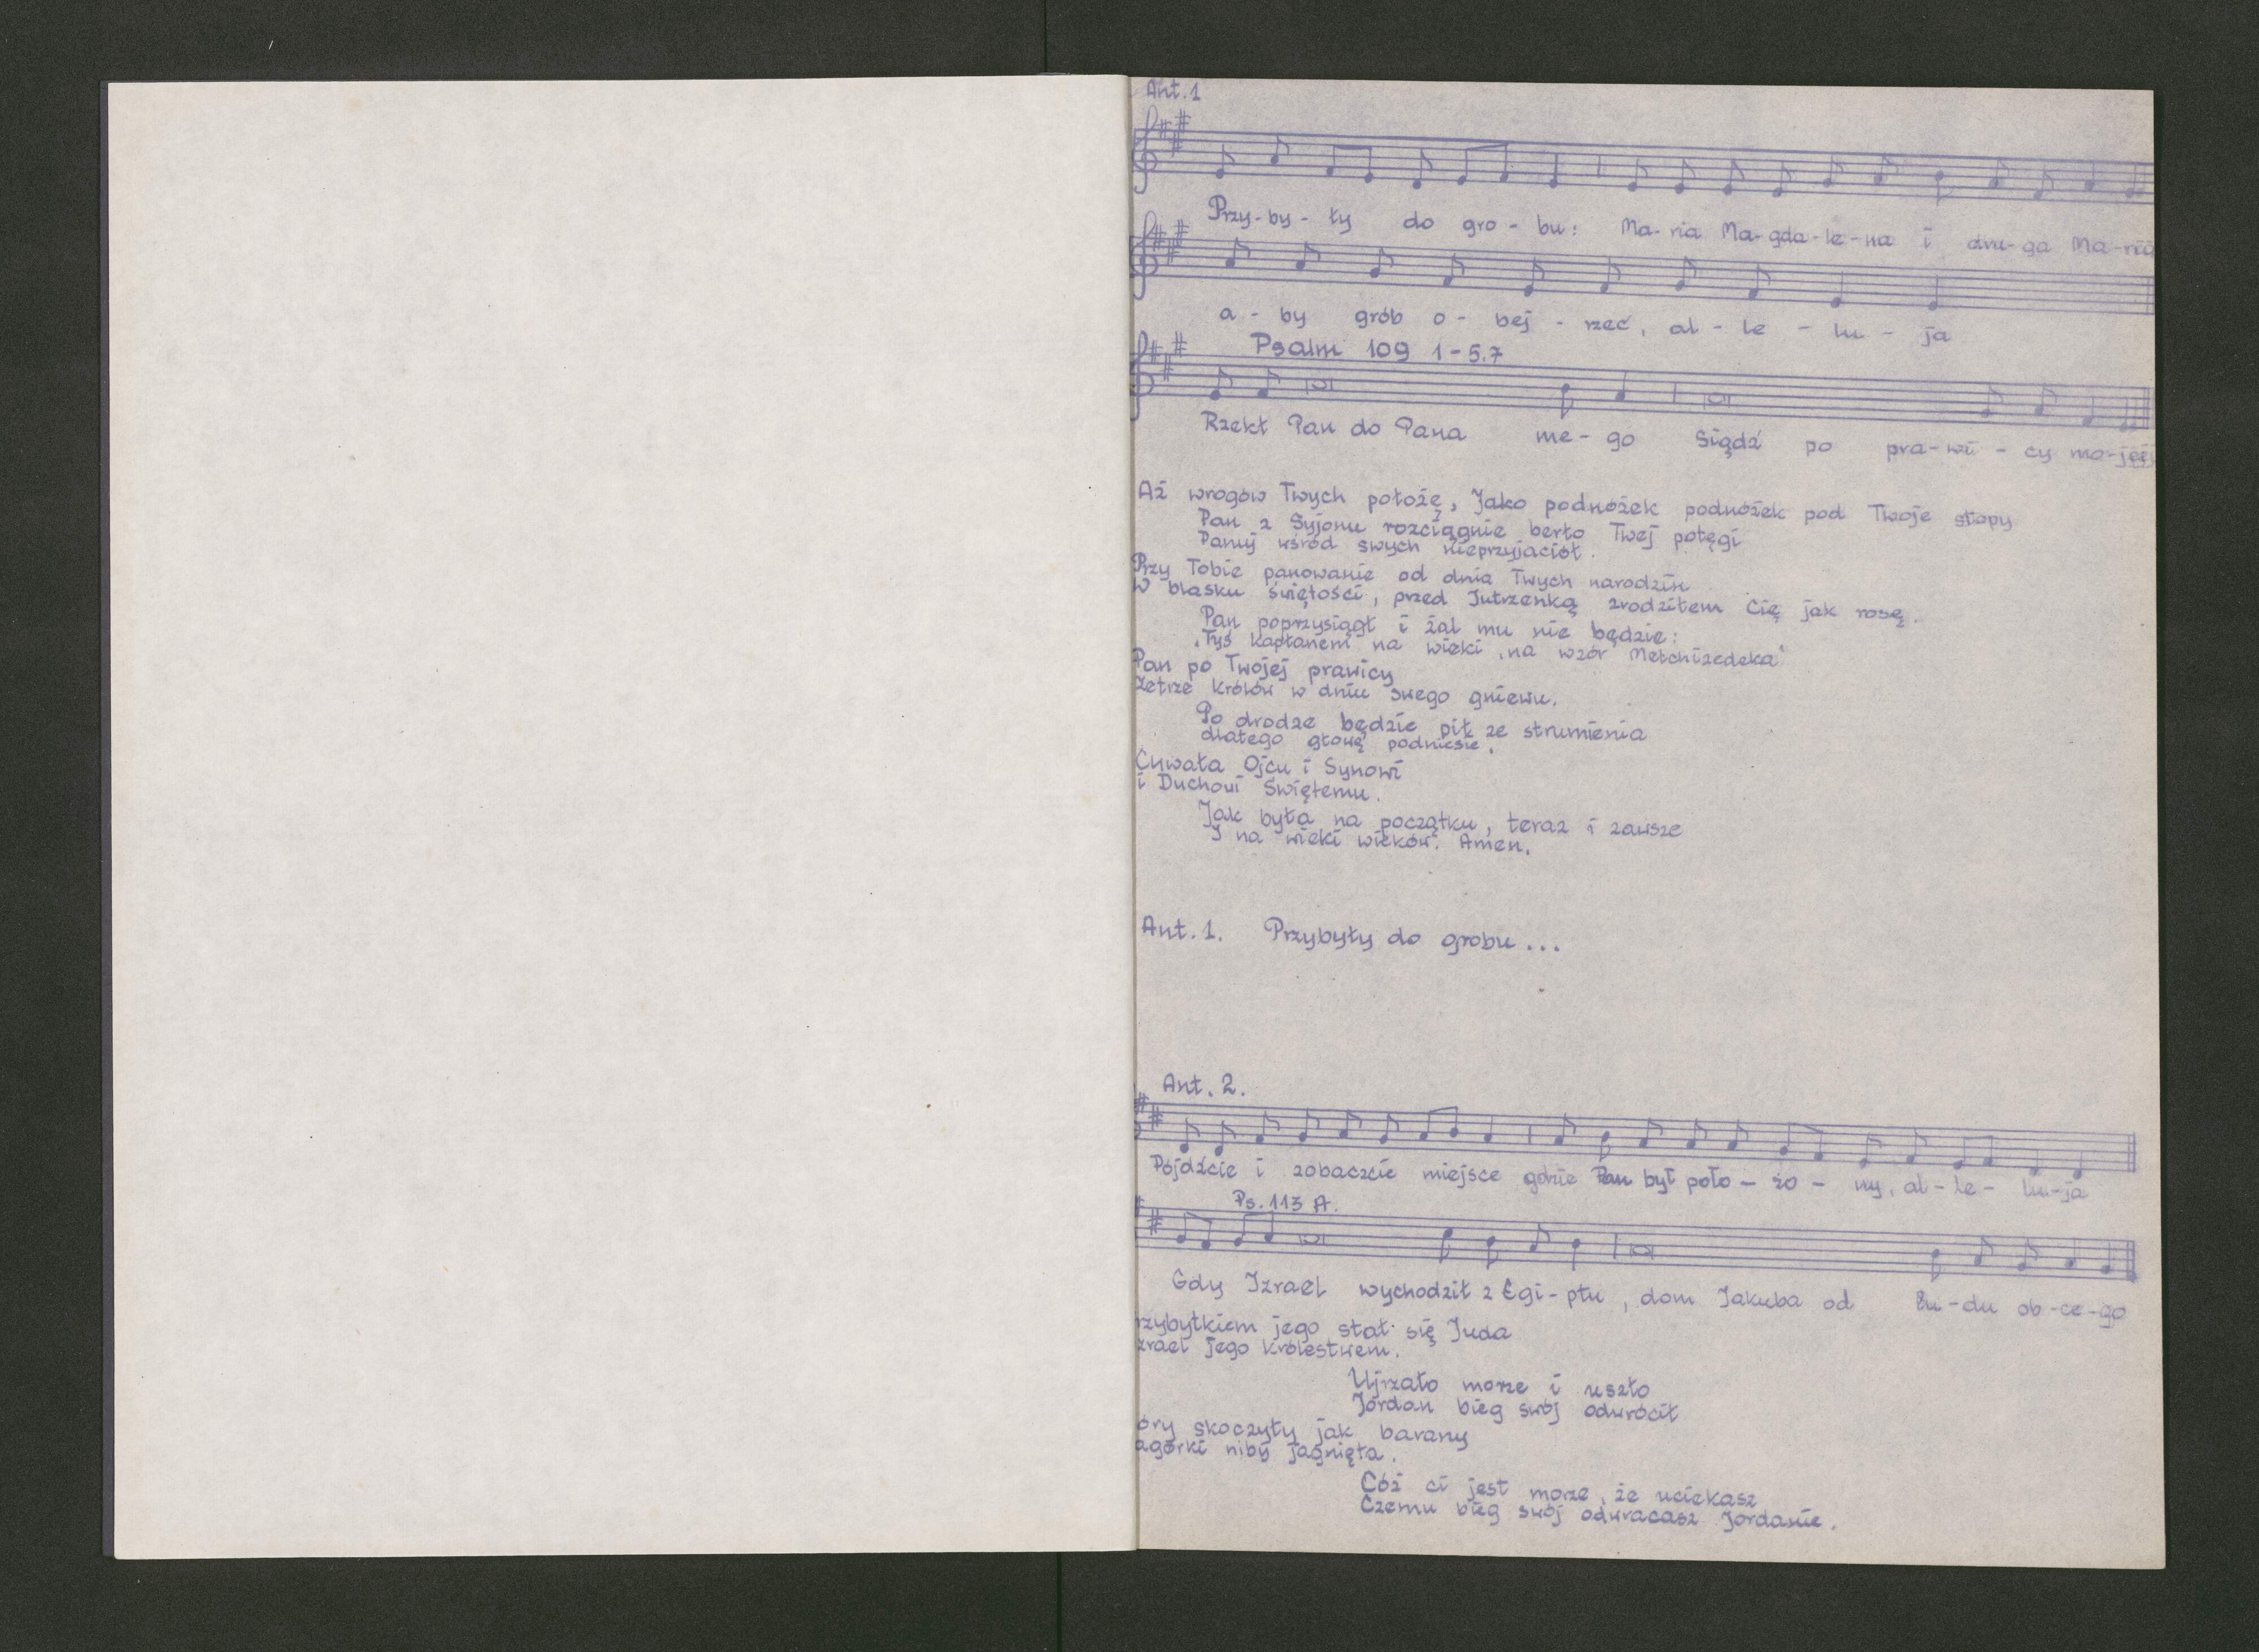 Ant. 1
Przy-by-ły do gro-bu: Ma-ria Ma-gda-le-na i dru-ga Ma-ria
a-by grób o-bej-rzeć, al-le-lu-ja
Psalm 109 1-5.7
Rzekł Pan do Pana me-go Siądź po pra-wi-cy mo-jej
Aż wrogów Twych położę, Jako podnóżek podnóżek pod Twoje stopy
Pan z Syjonu rozciągnie berło Twej potęgi
Panuj wśród swych nieprzyjaciół.
Przy Tobie panowanie od dnia Twych narodzin
W blasku świętości, przed Jutrzenką zrodziłem Cię jak rosę.
Pan poprzysiągł i żal mu nie będzie:
"Tyś kapłanem na wieki, na wzór Melchizedeka"
Pan po Twojej prawicy
Zetrze królów w dniu swego gniewu.
Po drodze będzie pił ze strumienia
dlatego głowę podniesie.
Chwała Ojcu i Synowi
i Duchowi Świętemu.
Jak była na początku, teraz i zawsze
I na wieki wieków. Amen.
Ant. 1. Przybyły do grobu...
Ant. 2.
Pójdźcie i zobaczcie miejsce gdzie Pan był poło-żo-ny, al-le-lu-ja
Ps. 113 A.
Gdy Izrael wychodził z Egi-ptu, dom Jakuba od lu-du ob-ce-go
rzybytkiem jego stał się Juda
zrael jego królestwem.
Ujrzało morze i uszło
Jordan bieg swój odwrócił
óry skoczyły jak barany
agórki niby jagnięta.
Cóż ci jest morze, że uciekasz
Czemu bieg swój odwracasz Jordanie.